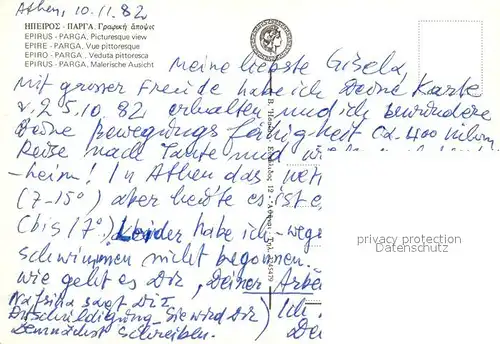 Athen, 10.11.82
ΗΠΕΙΡΟΣ - ΠΑΡΓΑ. Γραφική άποψις
EPIRUS - PARGA, Picturesque view
EPIRE - PARGA, Vue pittoresque
EPIRO - PARGA, Veduta pittoresca
EPIRUS - PARGA, Malerische Ausicht
Meine liebste Gisela,
Mit grosser Freude habe ich Deine Karte
v. 25.10.82 erhalten und ich bewundere
Deine Bewegungsfähigheit ca. 400
Reise nach Tante und
heim! In Athen das
(7-15°) aber heute es ist
(bis 17°). Leider habe ich
schwimmen nicht begonnen.
wie geht es Dir, Deiner
sagt Dir
Entschuldigung. Sie wird Dir
Demnächst schreiben.
Ich
privacy protection
Datenschutz